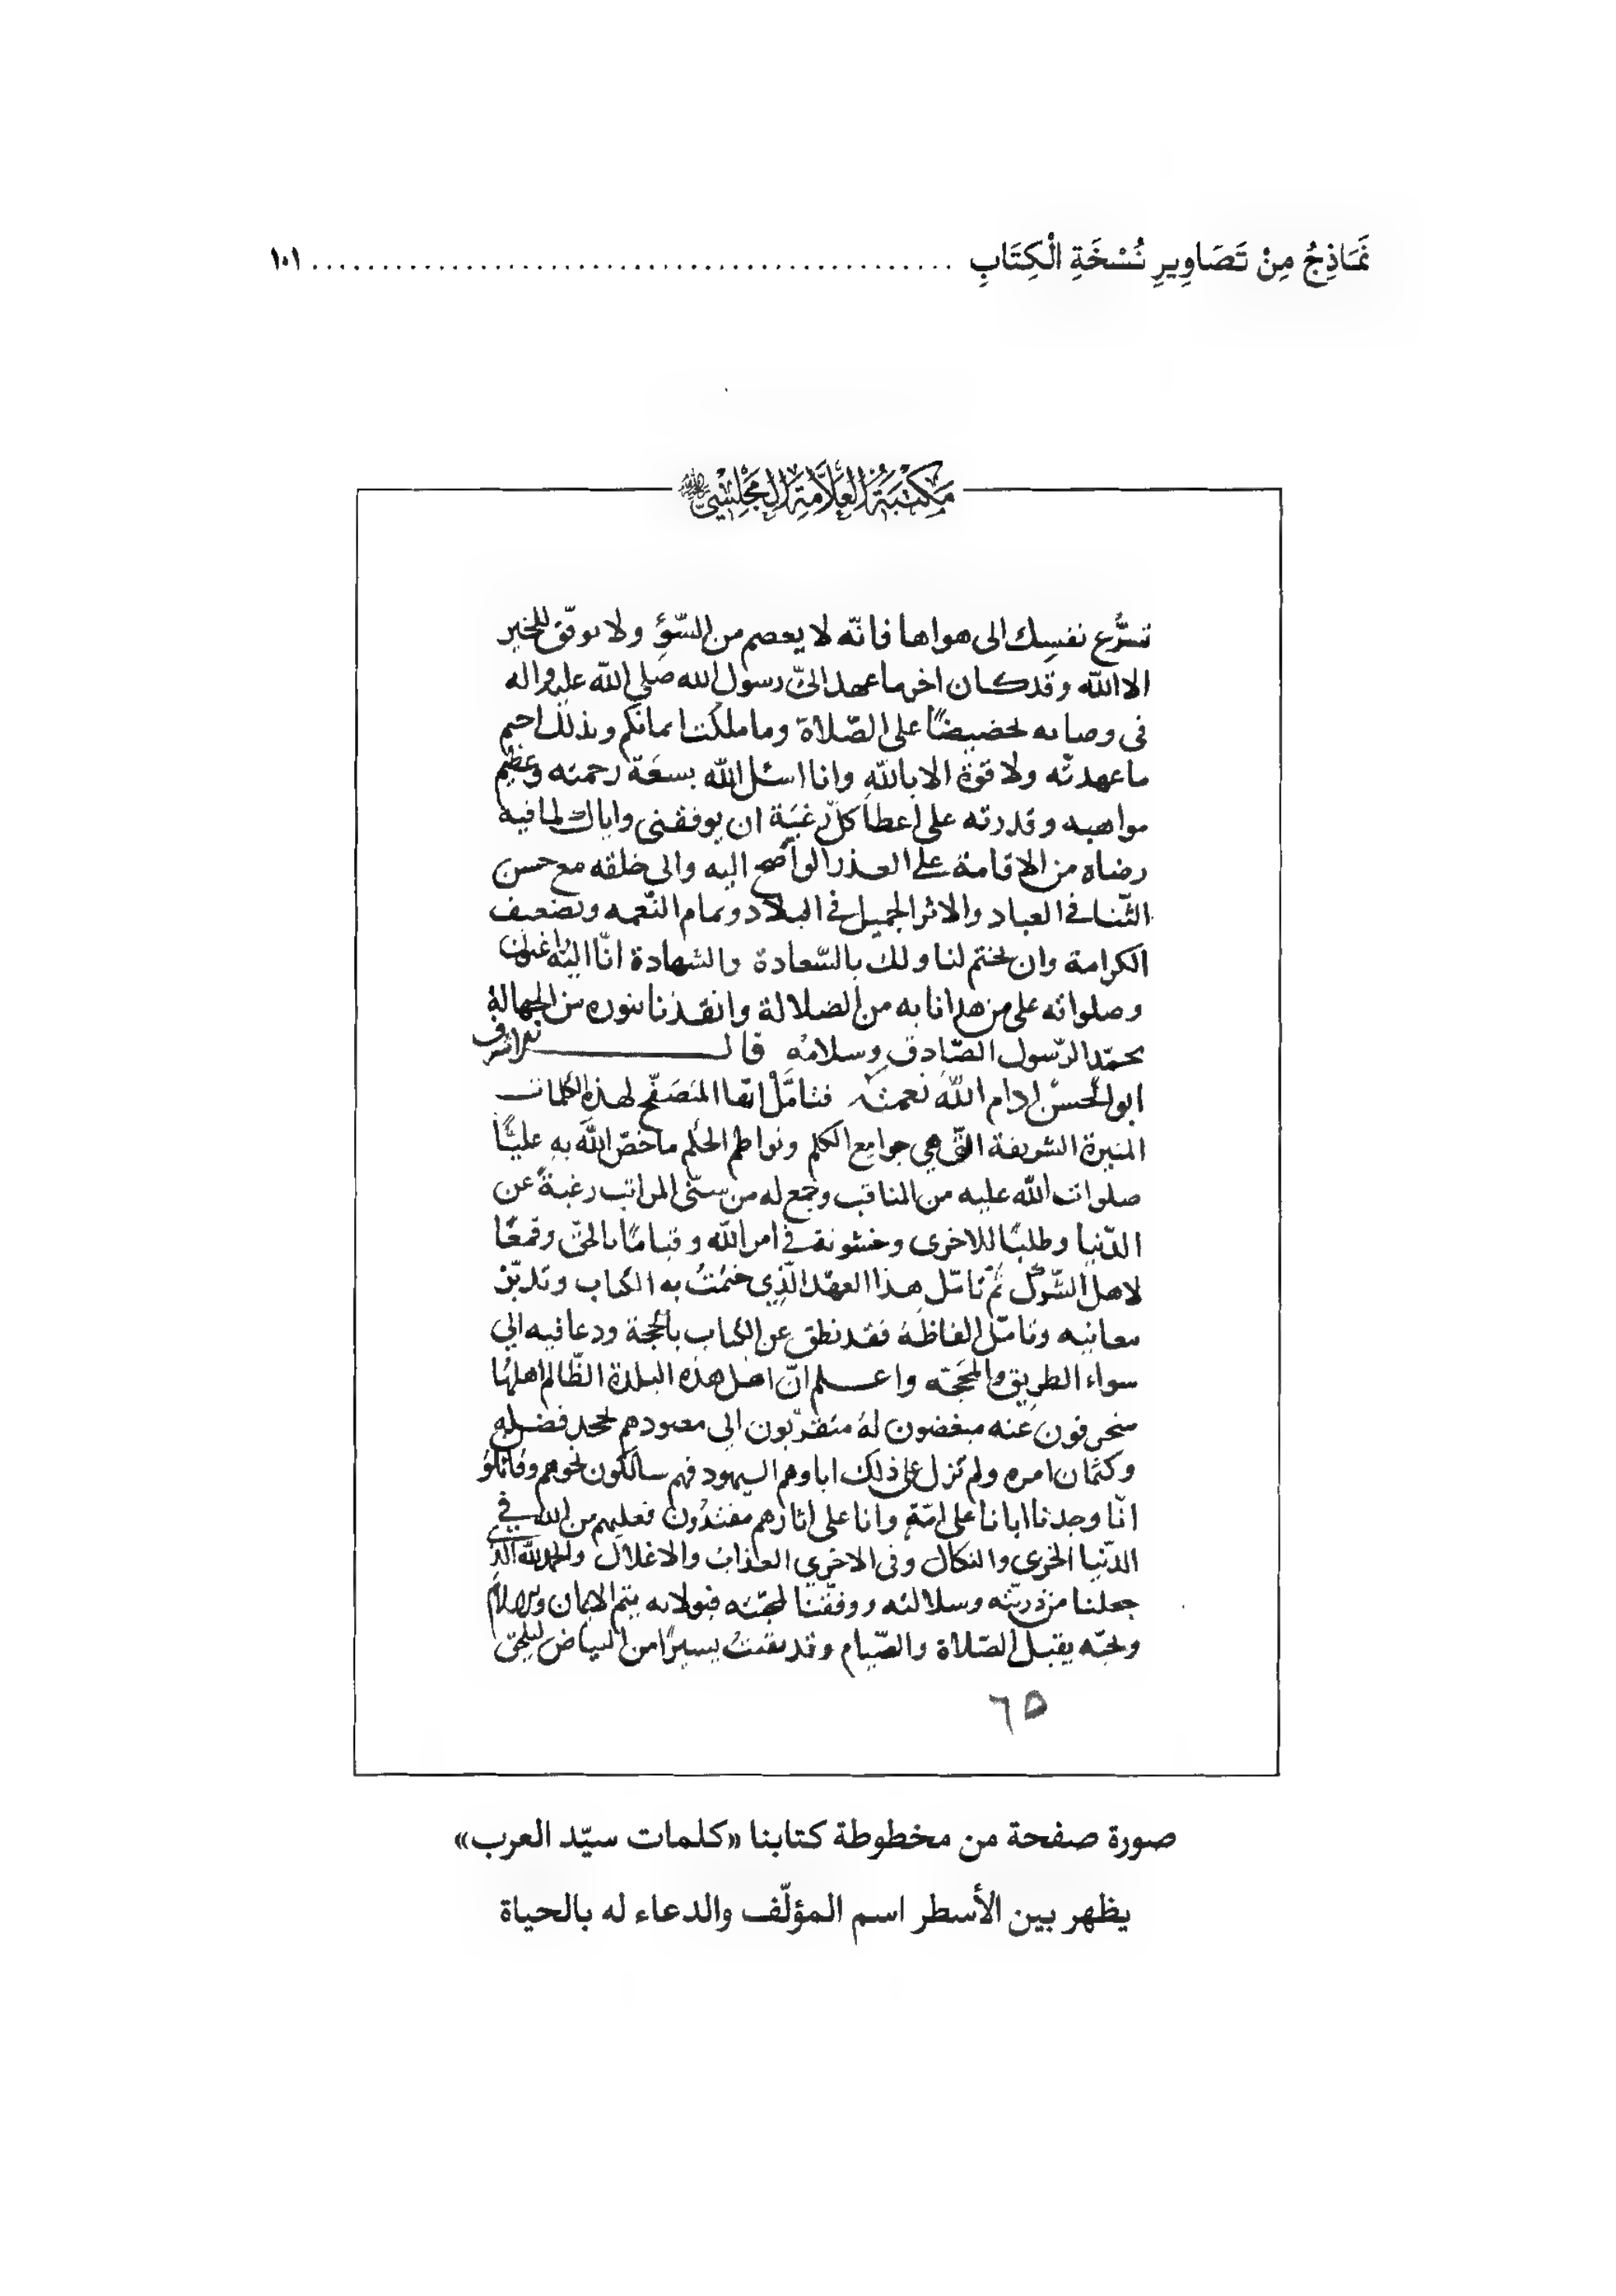 نَمَاذِجُ مِنْ تَصَاوِيرِ نُسْخَةِ الْكِتَابِ ........................................ ١٠١
مَكْتَبَةُ العَلَّامَةِ المَجْلِسِيّ
تسرّع نفسك الى هواها فانّه لا يعصم من السّوء ولا يوفّق للخير
الا الله وقد كان اخر ما عهد اليّ رسول الله صلى الله عليه واله
فى وصاياه تحضيضًا على الصّلاة وما ملكت ايمانكم وبذلك اختم
ما عهدته ولا قوة الا بالله وانا اسئل الله بسعة رحمته وعظيم
مواهبه وقدرته على اعطا كلّ رغبة ان يوفقنى واياك لما فيه
رضاه من الاقامة على العذر الواضح اليه والى خلقه مع حسن
الثّنا فى العباد والاثر الجميل فى البلاد وتمام النّعمه وتضعيف
الكرامة وان يختم لنا ولك بالسّعادة والشهادة انّا اليه راغبون
وصلواته على من هدانا به من الضلالة وانقذنا بنوره من الجهالة
محمّد الرّسول الصّادق وسلامه قال
ابو الحسن ادام الله نعمته فتامّل ايّها المتصفّح لهذه الكلمات
المنيرة الشريفة التّى هى جوامع الكلم ونواطم الحكم ما خصّ الله به عليًّا
صلوات الله عليه من المناقب وجمع له من سنى المراتب رغبةً عن
الدّنيا وطلبًا للاخرى وخشونة فى امر الله وقيامًا بالحقّ وقمعًا
لاهل الشّرك ثمّ تامّل هذا العهد الّذى ختمتُ به الكتاب وتدبّر
معانيه وتامّل الفاظه فقد نطق عن الكتاب بالحجة ودعا فيه الى
سواء الطريق والمحَجّه واعلم انّ اهل هذه البلدة الظّالم اهلها
منحرفون عنه مبغضون له متقرّبون الى معبودهم بجحد فضله
وكتمان امره ولم تزل على ذلك اباوهم اليهود فهم سالكون نحوهم وقائلو
انّا وجدنا ابانا على امّة وانا على اثارهم مقتدون فعليهم من الله فى
الدّنيا الخزى والنكال وفى الاخرى العذاب والاغلال والحمد لله الذى
جعلنا من ذريّته وسلالته ووفّقنا لمحبّته فبولايه يتم الايمان والاسلام
وبحبّه يقبل الصّلاة والصّيام وقد بقيت يسيرًا من البياض ليلحق
٦٥
صورة صفحة من مخطوطة كتابنا «كلمات سيّد العرب»
يظهر بين الأسطر اسم المؤلّف والدعاء له بالحياة